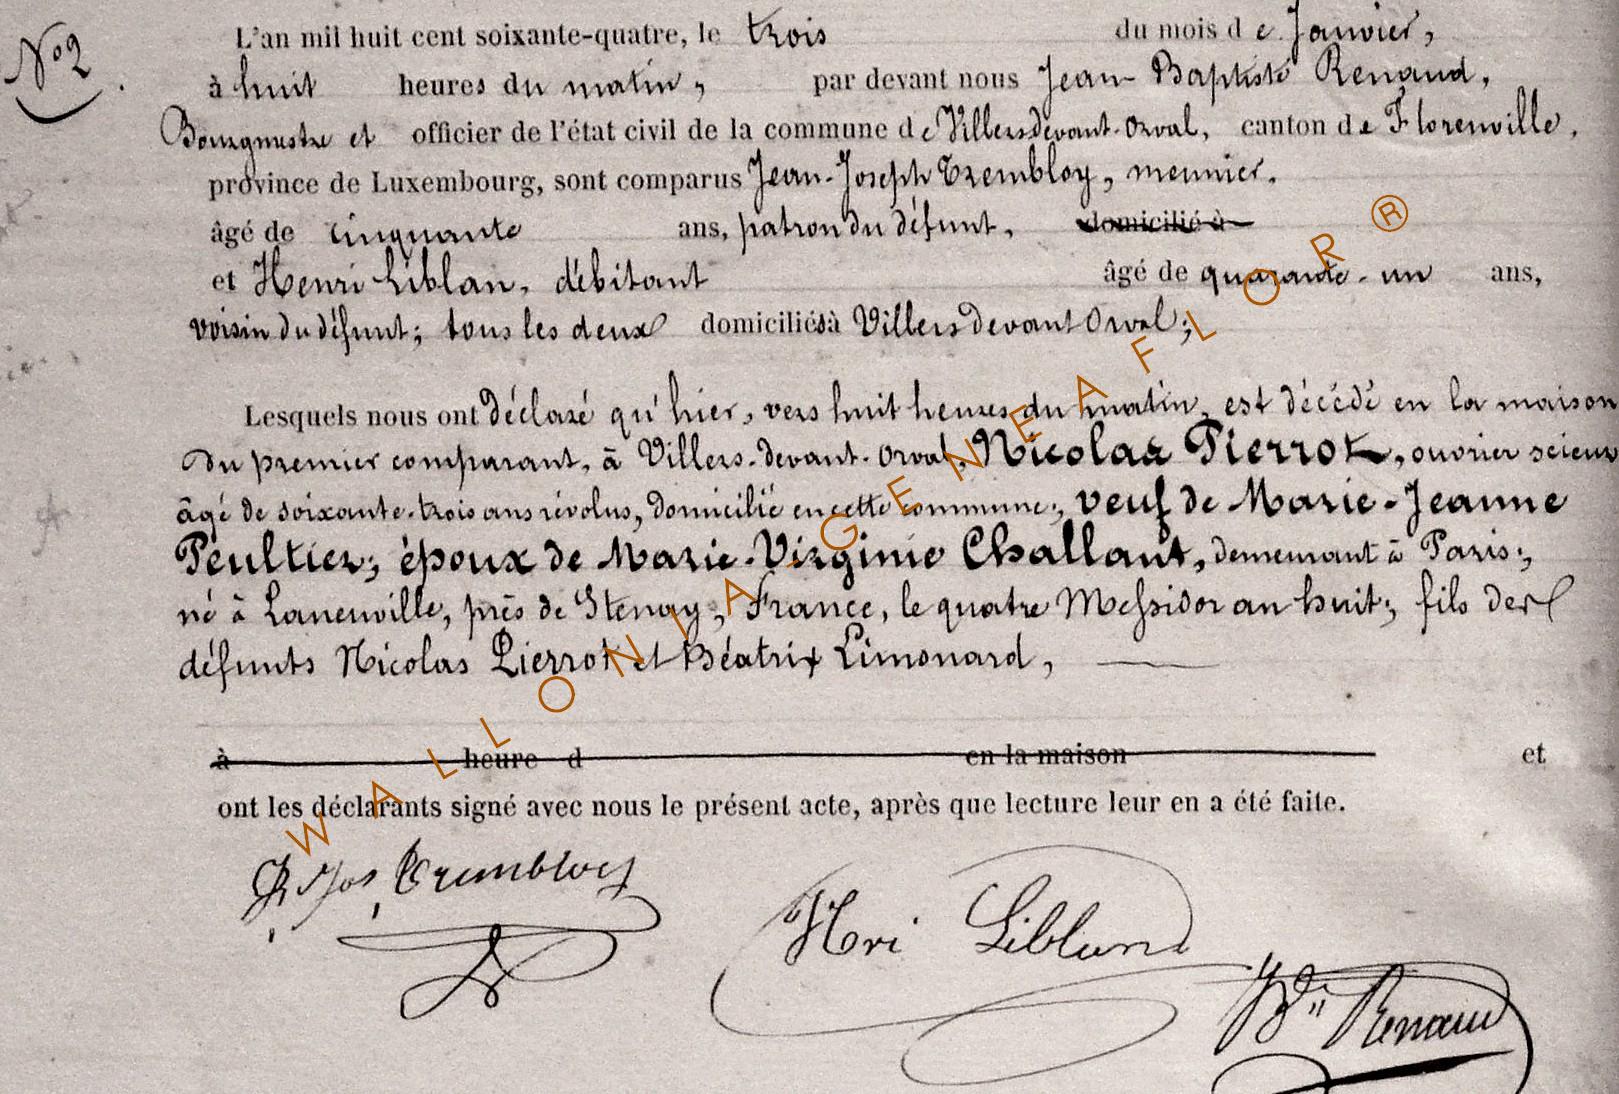 N° 2
L'an mil huit cent soixante-quatre, le trois du mois de Janvier,
à huit heures du matin, par devant nous Jean-Baptiste Renaud,
Bourgmestre et officier de l'état civil de la commune de Villers devant-Orval, canton de Florenville,
province de Luxembourg, sont comparus Jean-Joseph Trembloy, meunier,
âgé de cinquante ans, patron du défunt, domicilié à
et Henri Liblan, débitant âgé de quarante-un ans,
voisin du défunt; tous les deux domiciliés à Villers devant Orval;
Lesquels nous ont déclaré qu'hier, vers huit heures du matin, est décédé en la maison
du premier comparant, à Villers-devant-Orval, Nicolas Pierrot, ouvrier scieur
âgé de soixante-trois ans révolus, domicilié en cette commune; veuf de Marie-Jeanne
Peultier; époux de Marie-Virginie Challant, demeurant à Paris;
né à Laneuville, près de Stenay, France, le quatre Messidor an huit; fils des
défunts Nicolas Pierrot et Béatrix Limonard,
à heure d en la maison et
ont les déclarants signé avec nous le présent acte, après que lecture leur en a été faite.
J. Jos Trembloy
Hori Libland
Bte Renaud
WALLONIA-GENEAFLOR®